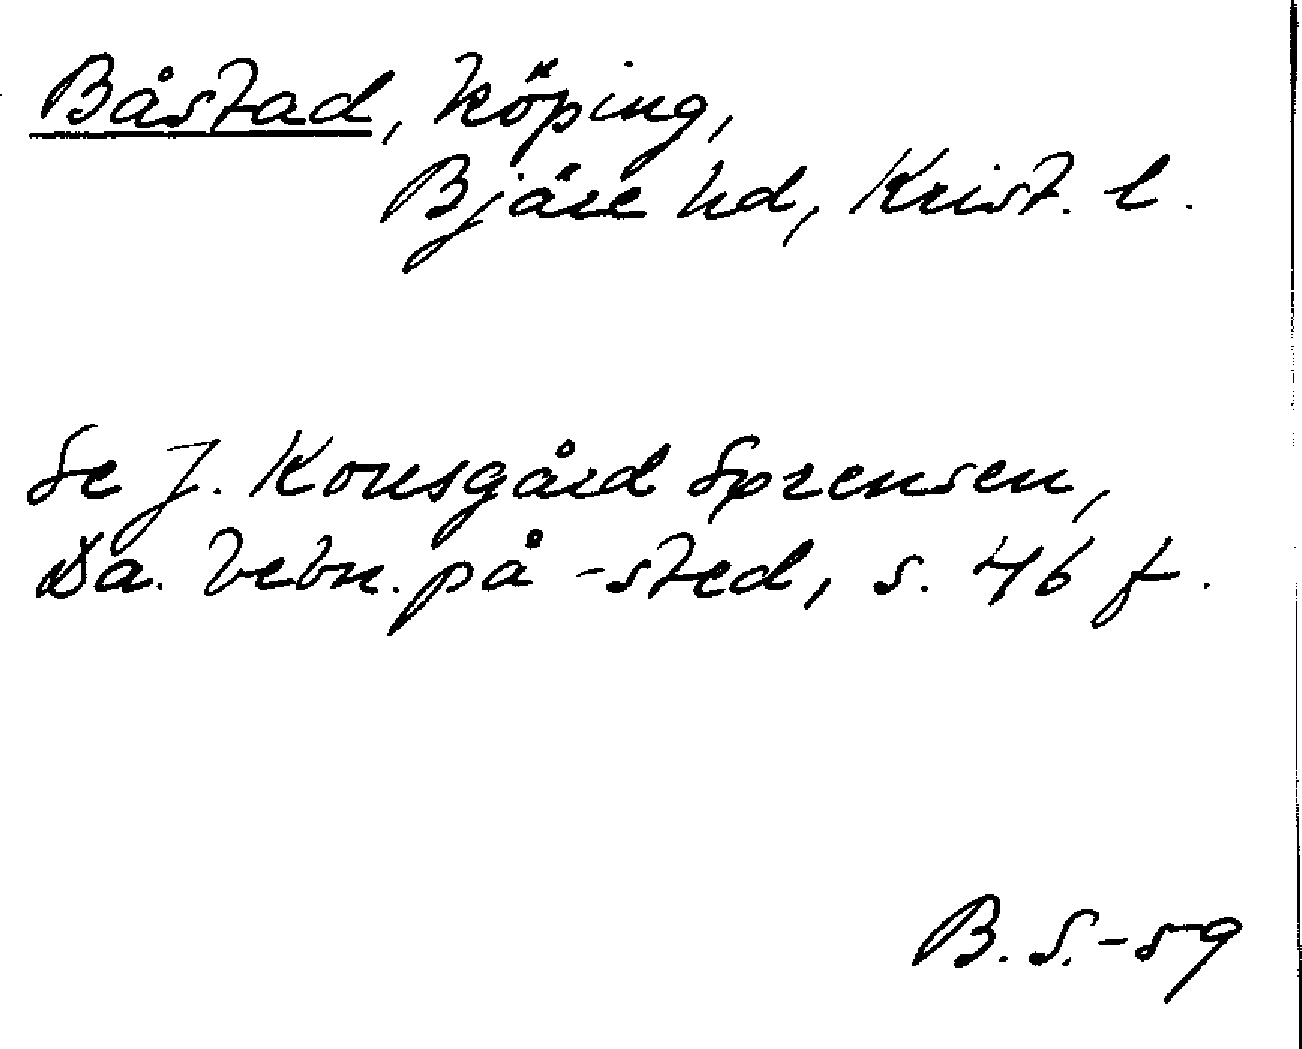 Båstad, köping,
Bjäre hd, Krist. l.
Se J. Kousgård Sørensen,
Da. bebn. på -sted, s. 46 f.
B. S. -59